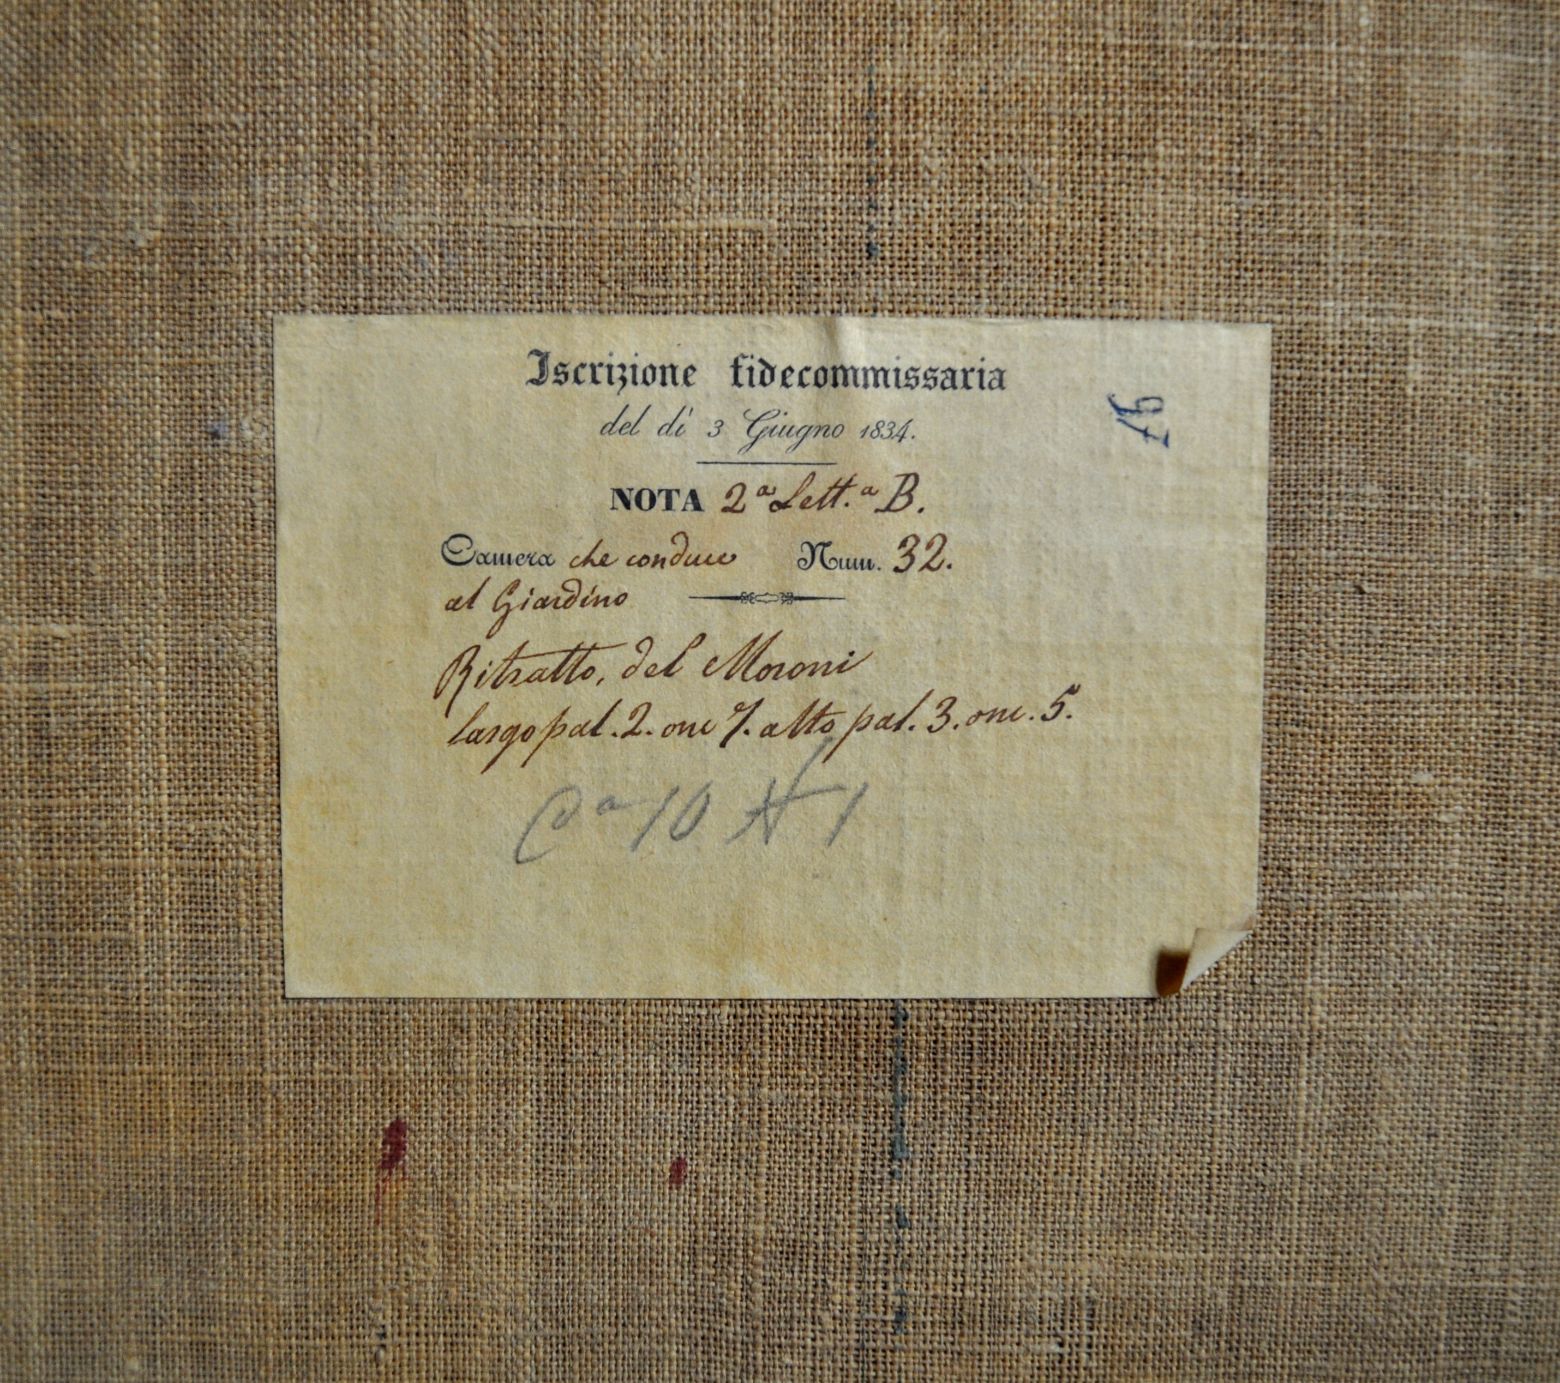 Iscrizione fidecommissaria
del dì 3 Giugno 1834.
NOTA 2ª Lett.ª B.
Camera che conduce Num. 32.
al Giardino
Ritratto, del Moroni
largo pal. 2. onc 7. alto pal. 3. onc. 5.
97